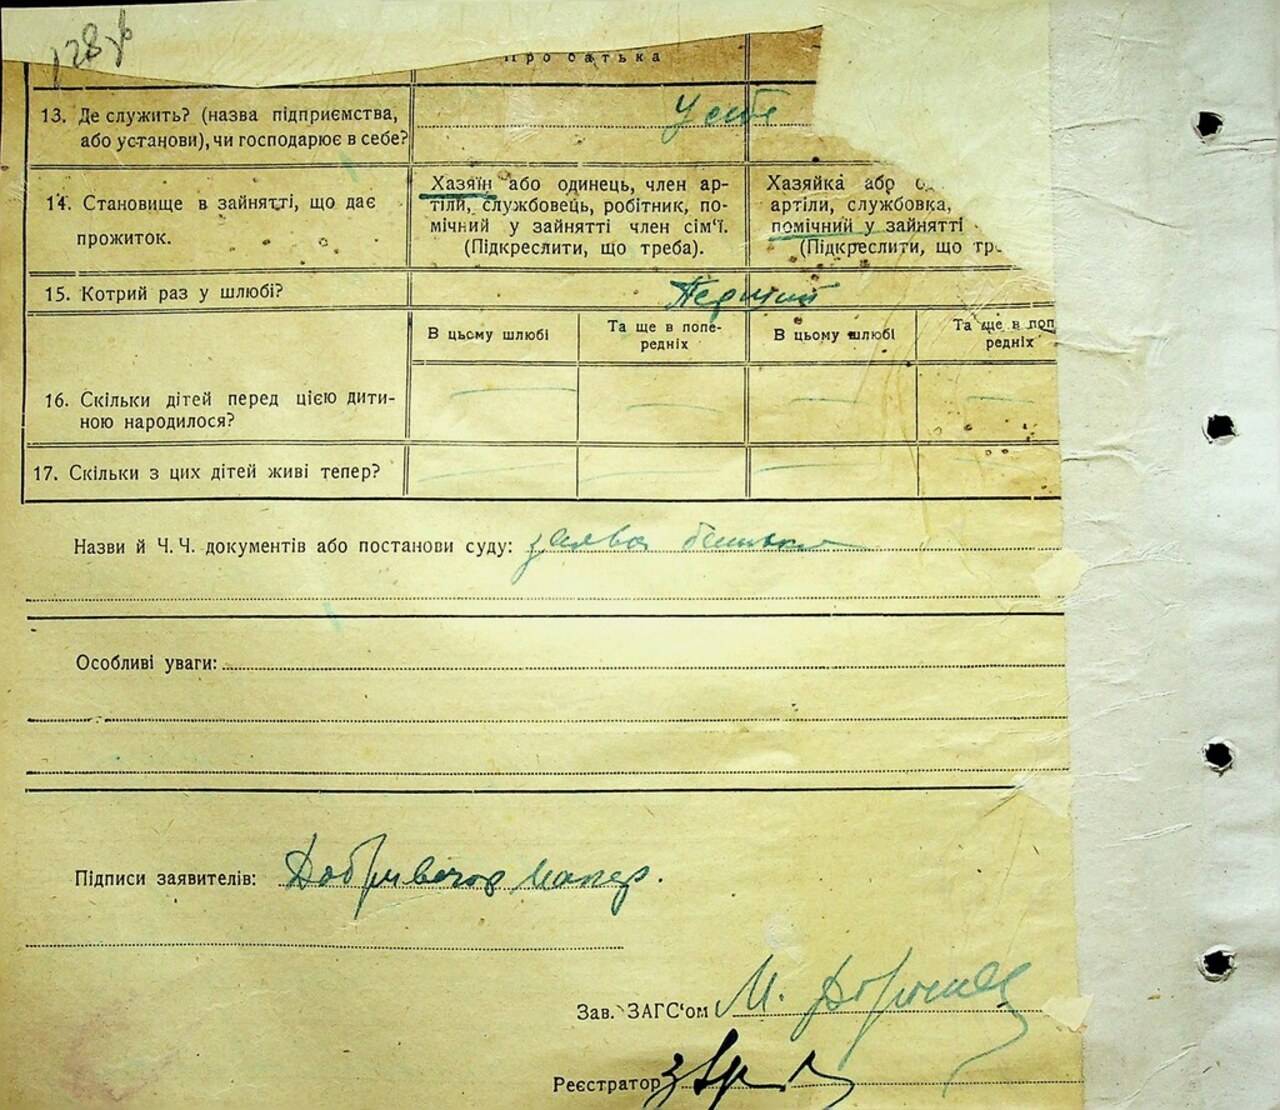 128 зв
Про батька
13. Де служить? (назва підприємства, або установи), чи господарює в себе?
У себе
14. Становище в зайнятті, що дає прожиток.
Хазяїн або одинець, член ар-
тіли, службовець, робітник, по-
мічний у зайнятті член сім'ї.
(Підкреслити, що треба).
Хазяйка або о
артіли, службовка,
помічний у зайнятті
(Підкреслити, що тре
15. Котрий раз у шлюбі?
Первий
В цьому шлюбі
Та ще в попе-
редніх
В цьому шлюбі
Та ще в поп
редніх
16. Скільки дітей перед цією дити-
ною народилося?
17. Скільки з цих дітей живі тепер?
Назви й Ч. Ч. документів або постанови суду: заява батька
Особливі уваги:
Підписи заявителів: Добривечор
Зав. ЗАГС'ом М.
Реєстратор